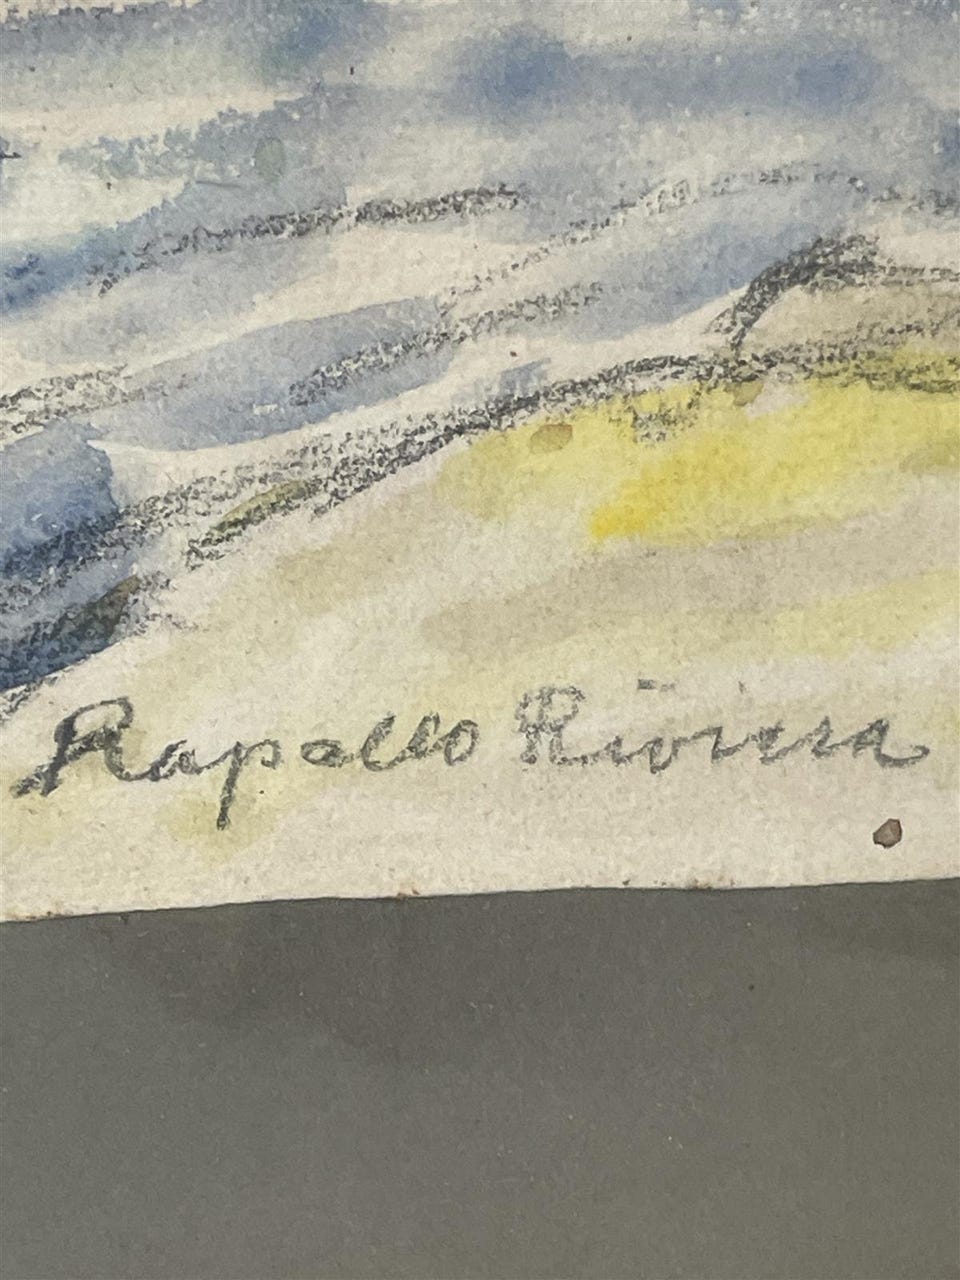 Rapallo Riviera